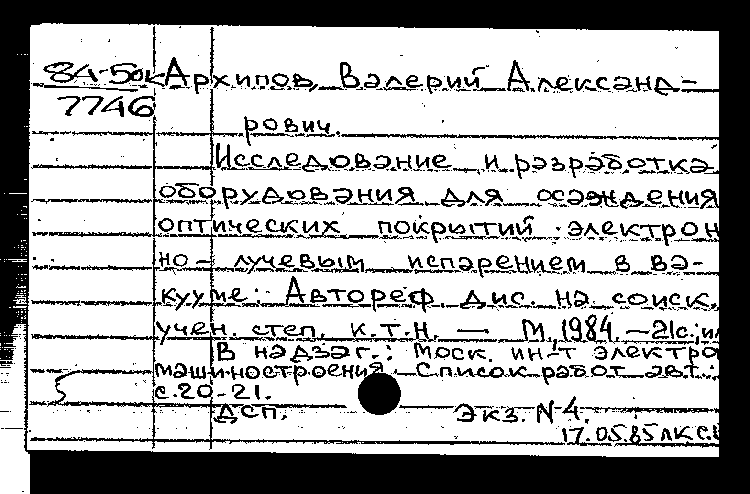 84-5ок Архипов, Валерий Александ-
7746
рович.
Исследование и разработка
оборудования для осаждения
оптических покрытий электрон
но-лучевым испарением в ва-
кууме: Автореф. дис. на соиск.
учен. степ. к.т.н. — М., 1984. — 21с.; ил
В надзаг.: Моск. ин-т электро
машиностроения. Список работ авт.:
с.20-21.
ДСП. Экз. N 4.
17.05.85